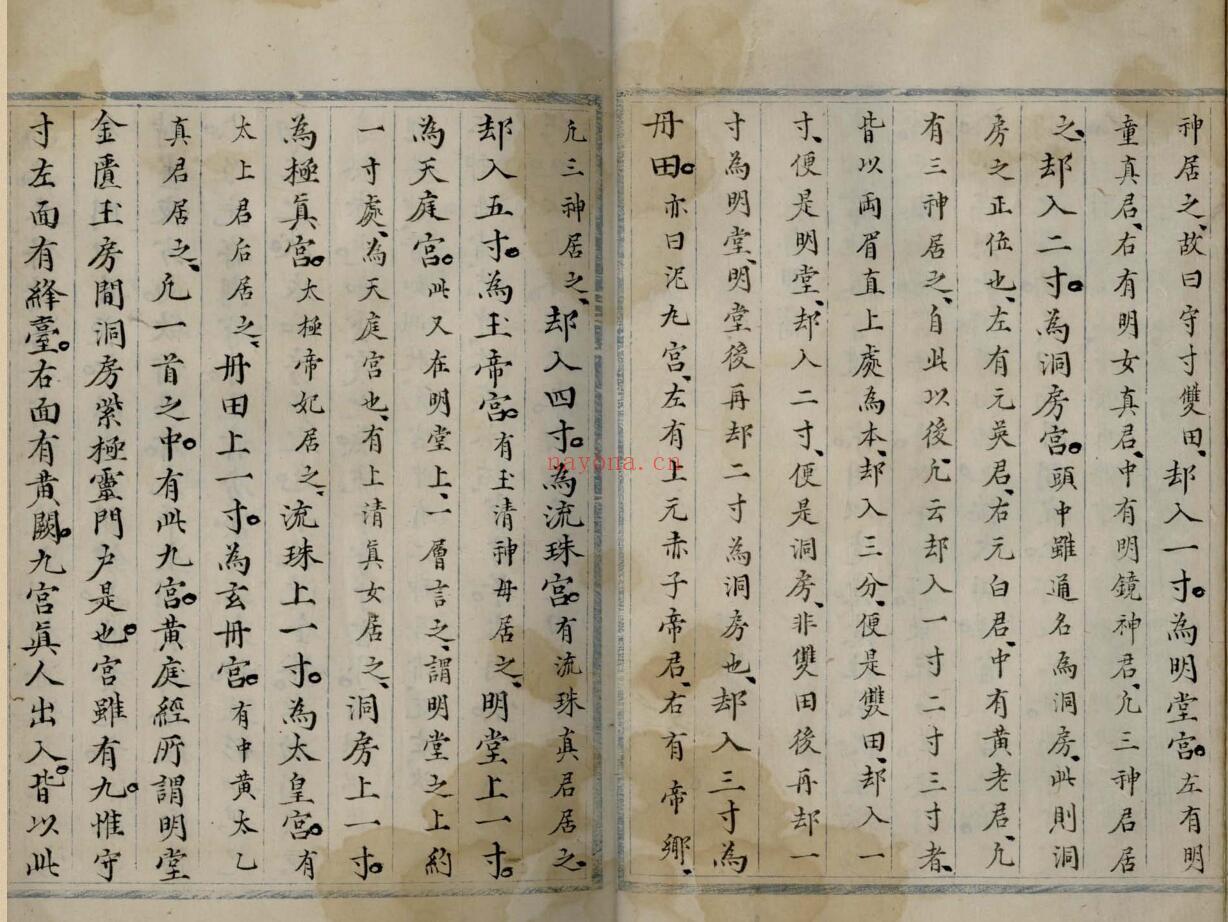 神居之、故曰守寸雙田、却入一寸。為明堂宮。左有明
童真君、右有明女真君、中有明鏡神君、凢三神居
之、却入二寸。為洞房宮。頭中雖通名為洞房、此則洞
房之正位也、左有元英君、右元白君、中有黃老君、凢
有三神居之、自此以後、凢云却入一寸二寸三寸者、
皆以両眉直上處為本、却入三分、便是雙田、却入一
寸、便是明堂、却入二寸、便是洞房、非雙田後再却一
寸為明堂、明堂後再却二寸為洞房也、却入三寸為
丹田。亦曰泥九宮、左有上元赤子帝君、右有帝鄉、
凢三神居之、却入四寸。為流珠宮。有流珠真君居之
却入五寸。為玉帝宮。有玉清神母居之、明堂上一寸。
為天庭宮。此又在明堂上、一層言之、謂明堂之上約
一寸處、為天庭宮也、有上清真女居之、洞房上一寸。
為極真宮。太極帝妃居之、流珠上一寸。為太皇宮。有
太上君后居之、丹田上一寸。為玄丹宮。有中黃太乙
真君居之、凢一首之中。有此九宮。黃庭經所謂明堂
金匱玉房間洞房紫極靈門戶是也。宮雖有九。惟守
寸左面有絳臺。右面有黃闕。九宮真人出入。皆以此
nayona.cn